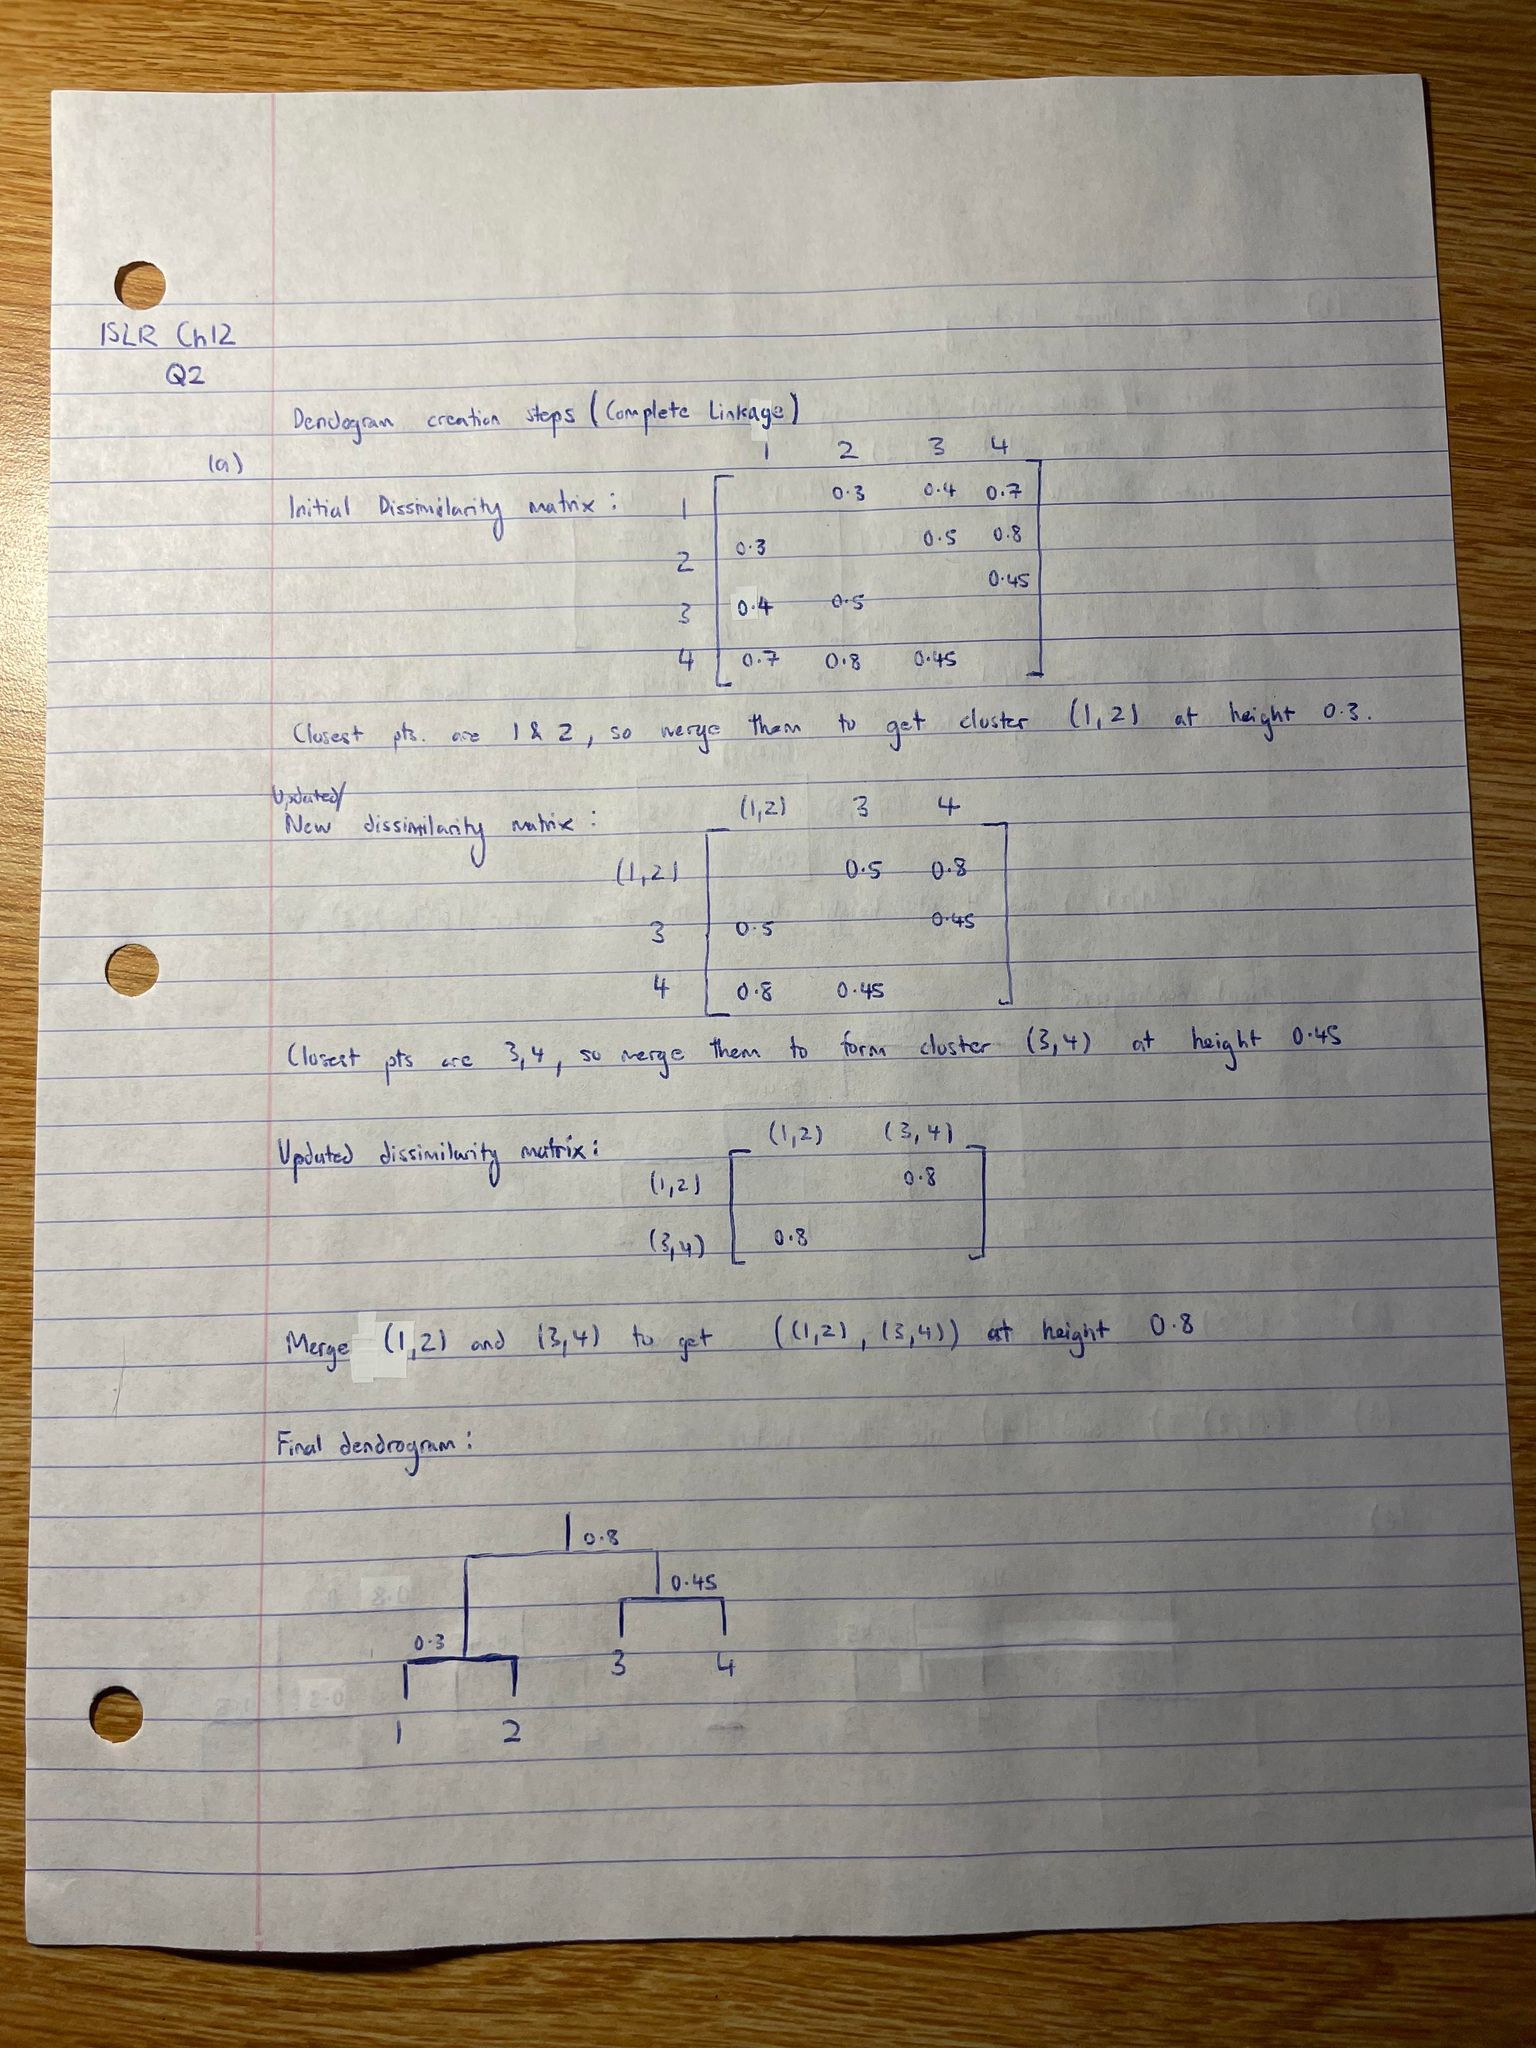 ISLR Ch12
Q2
Dendogram creation steps (Complete Linkage)
(a)
1 2 3 4
Initial Dissimilarity matrix :
1 0.3 0.4 0.7
2 0.3 0.5 0.8
3 0.4 0.5 0.45
4 0.7 0.8 0.45
Closest pts. are 1 & 2, so merge them to get cluster (1,2) at height 0.3.
Updated/
New dissimilarity matrix :
(1,2) 3 4
(1,2) 0.5 0.8
3 0.5 0.45
4 0.8 0.45
Closest pts are 3,4, so merge them to form cluster (3,4) at height 0.45
Updated dissimilarity matrix :
(1,2) (3,4)
(1,2) 0.8
(3,4) 0.8
Merge (1,2) and (3,4) to get ((1,2), (3,4)) at height 0.8
Final dendrogram :
0.8
0.45
0.3
3 4
1 2